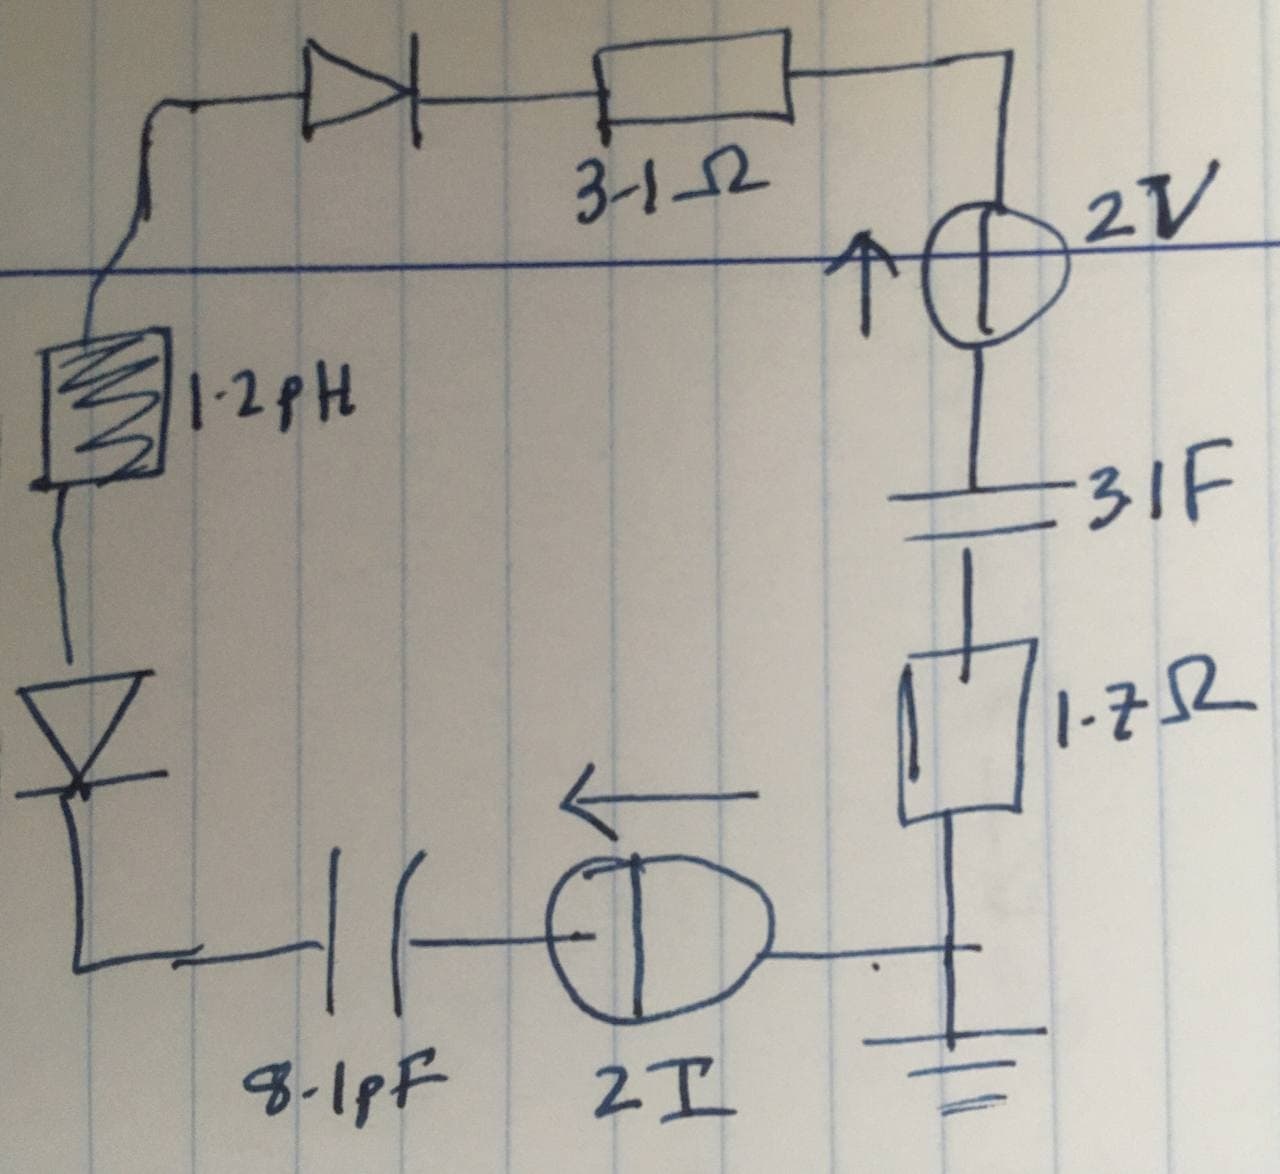 3.1Ω
2V
1.2pH
31F
1.7Ω
8.1pF
2I